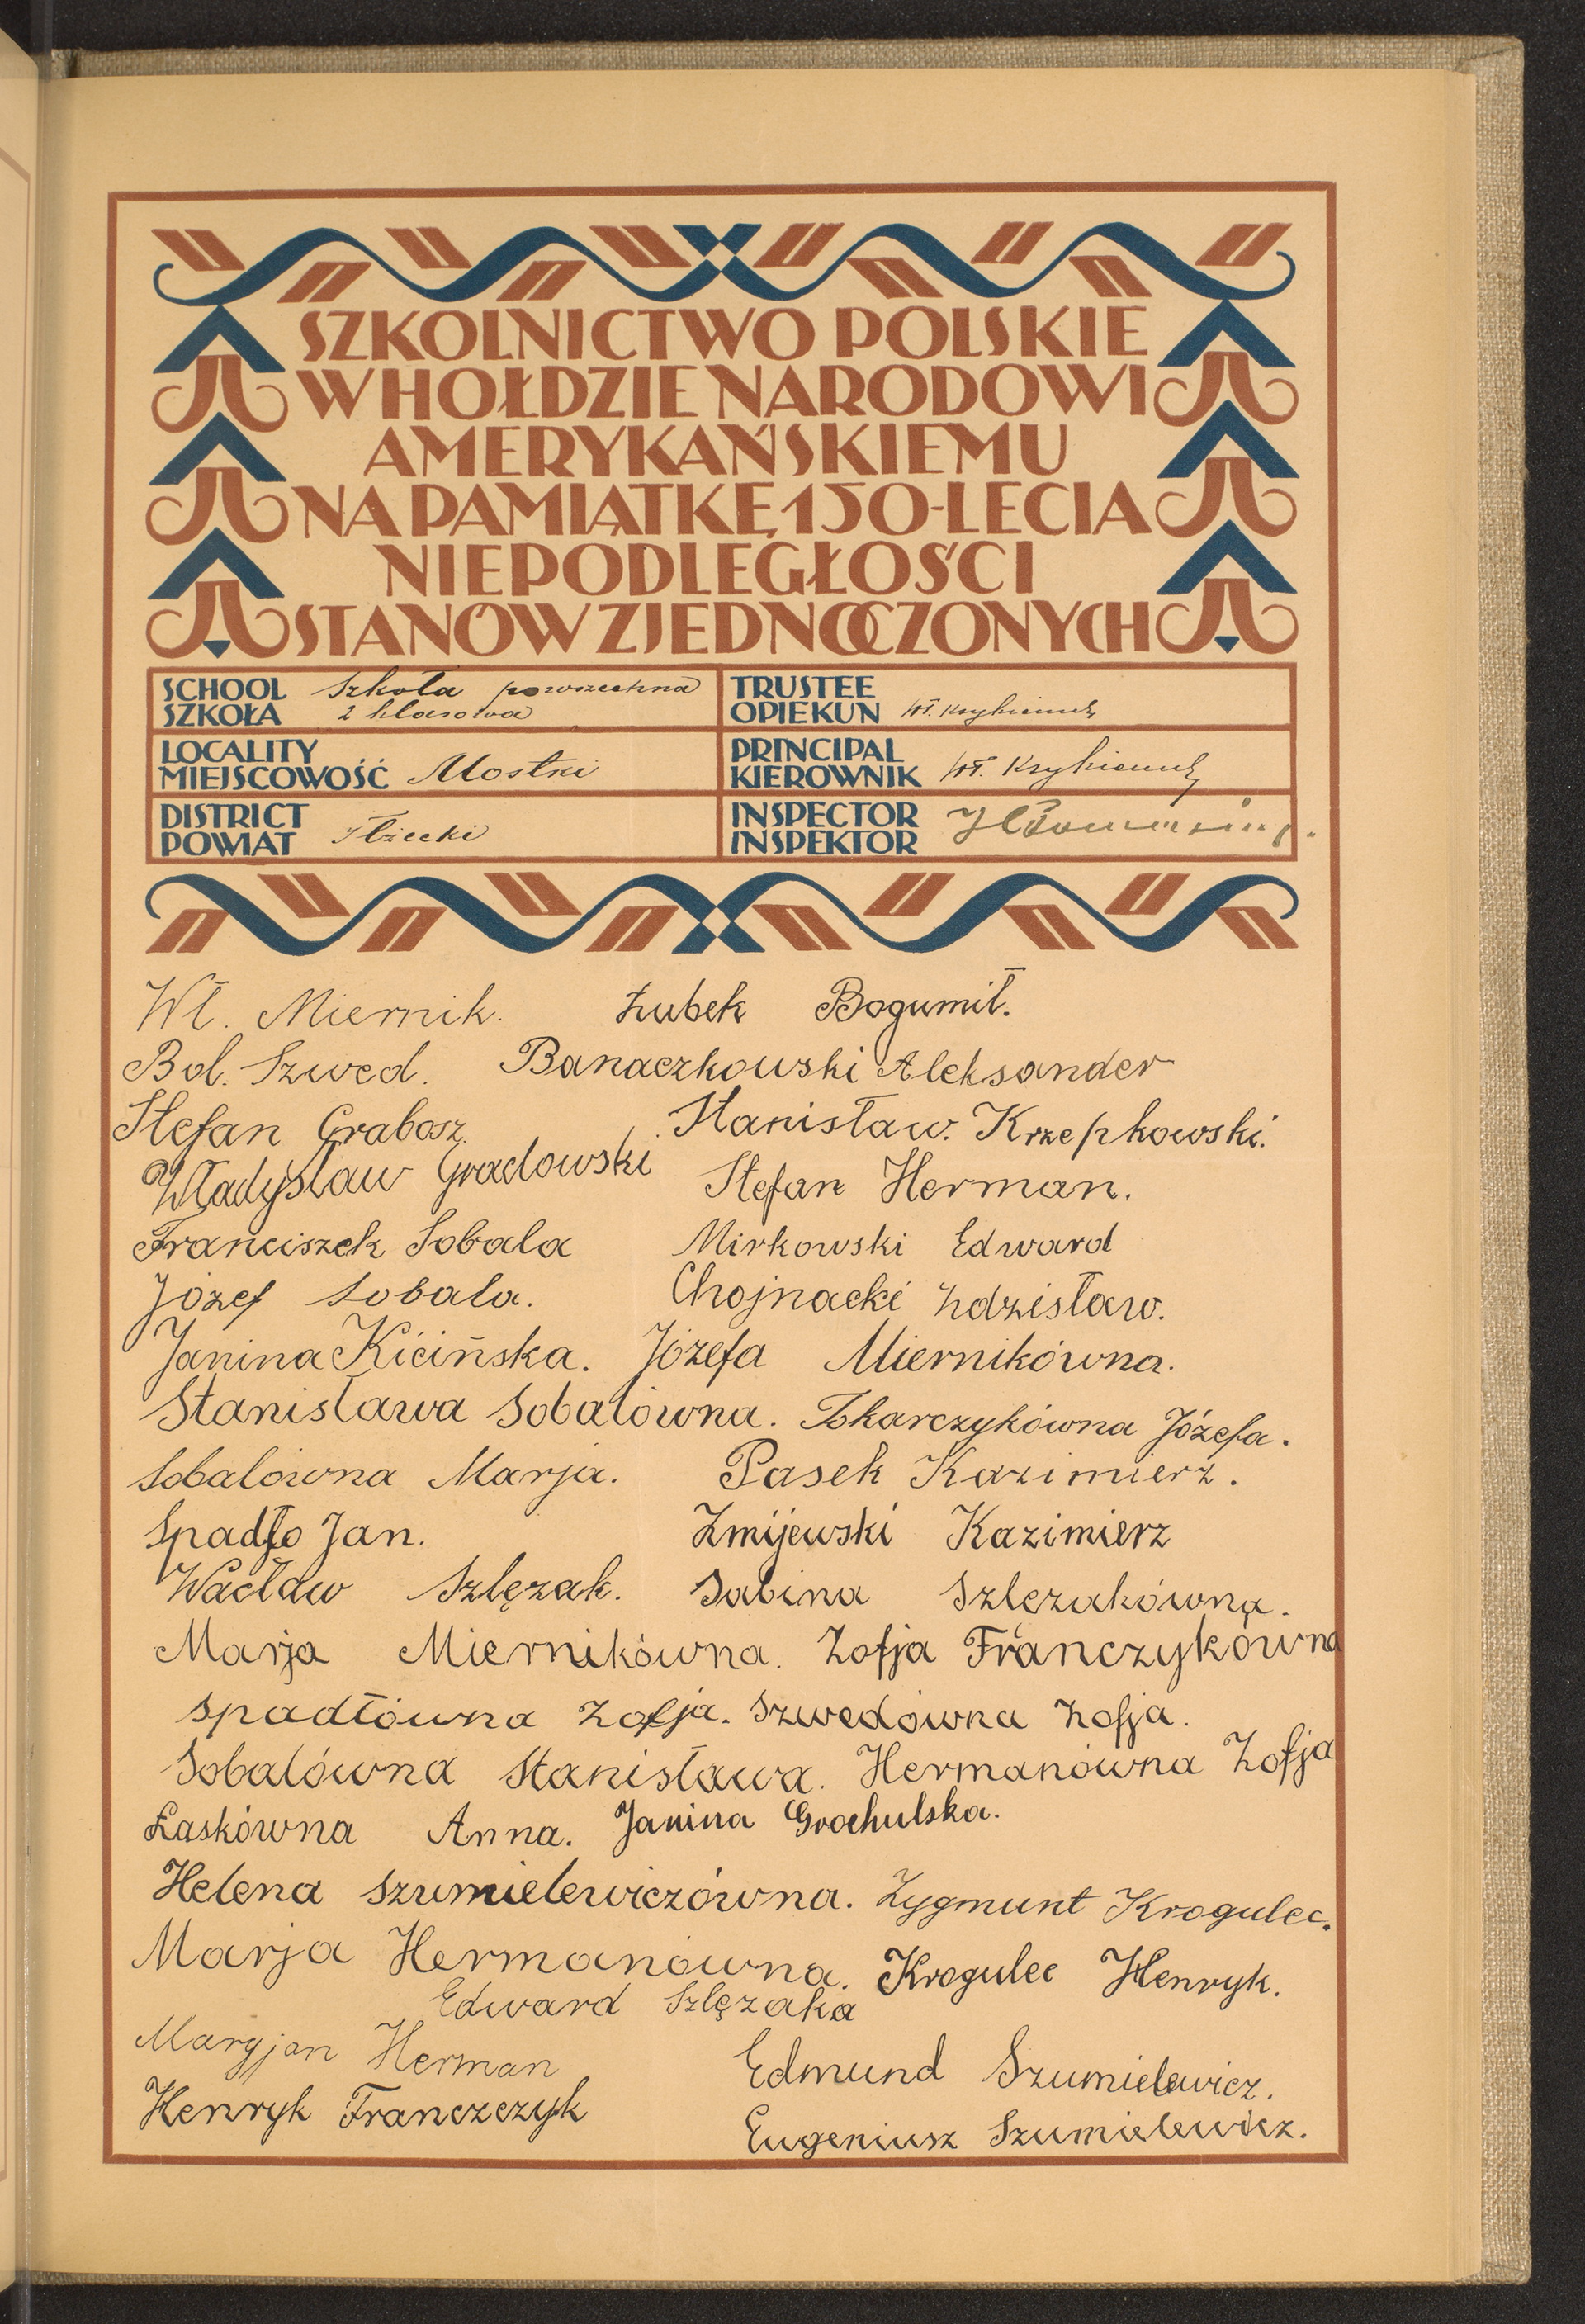 SZKOLNICTWO POLSKIE
W HOŁDZIE NARODOWI
AMERYKAŃSKIEMU
NA PAMIĄTKĘ 150-LECIA
NIEPODLEGŁOŚCI
STANÓW ZJEDNOCZONYCH
SCHOOL Szkoła powszechna
SZKOŁA 2 klasowa
TRUSTEE
OPIEKUN Wł.
LOCALITY
MIEJSCOWOŚĆ Mostki
PRINCIPAL
KIEROWNIK Wł.
DISTRICT
POWIAT Iłżecki
INSPECTOR
INSPEKTOR
Wł. Miernik. Łubek Bogumił.
Bol. Szwed. Banaczkowski Aleksander
Stefan Grabosz Stanisław. Krzepkowski.
Władysław Gradowski Stefan Herman.
Franciszek Sobala Mirkowski Edward
Józef Sobala. Chojnacki Zdzisław.
Janina Kicińska. Józefa Miernikówna.
Stanisława Sobalówna. Tokarczykówna Józefa.
Sobalówna Marja. Pasek Kazimierz.
Spadło Jan. Zmijewski Kazimierz
Wacław Szlęzak. Sabina Szlezakówna.
Marja Miernikówna. Zofja Franczykówna
Spadłówna Zofja. Szwedówna Zofja.
Sobalówna Stanisława. Hermanówna Zofja
Łaskówna Anna. Janina Grochulska.
Helena Szumielewiczówna. Zygmunt Krogulec.
Marja Hermanówna. Krogulec Henryk.
Edward Szlęzaka
Maryjan Herman Edmund Szumielewicz.
Henryk Franczczyk Eugeniusz Szumielewicz.